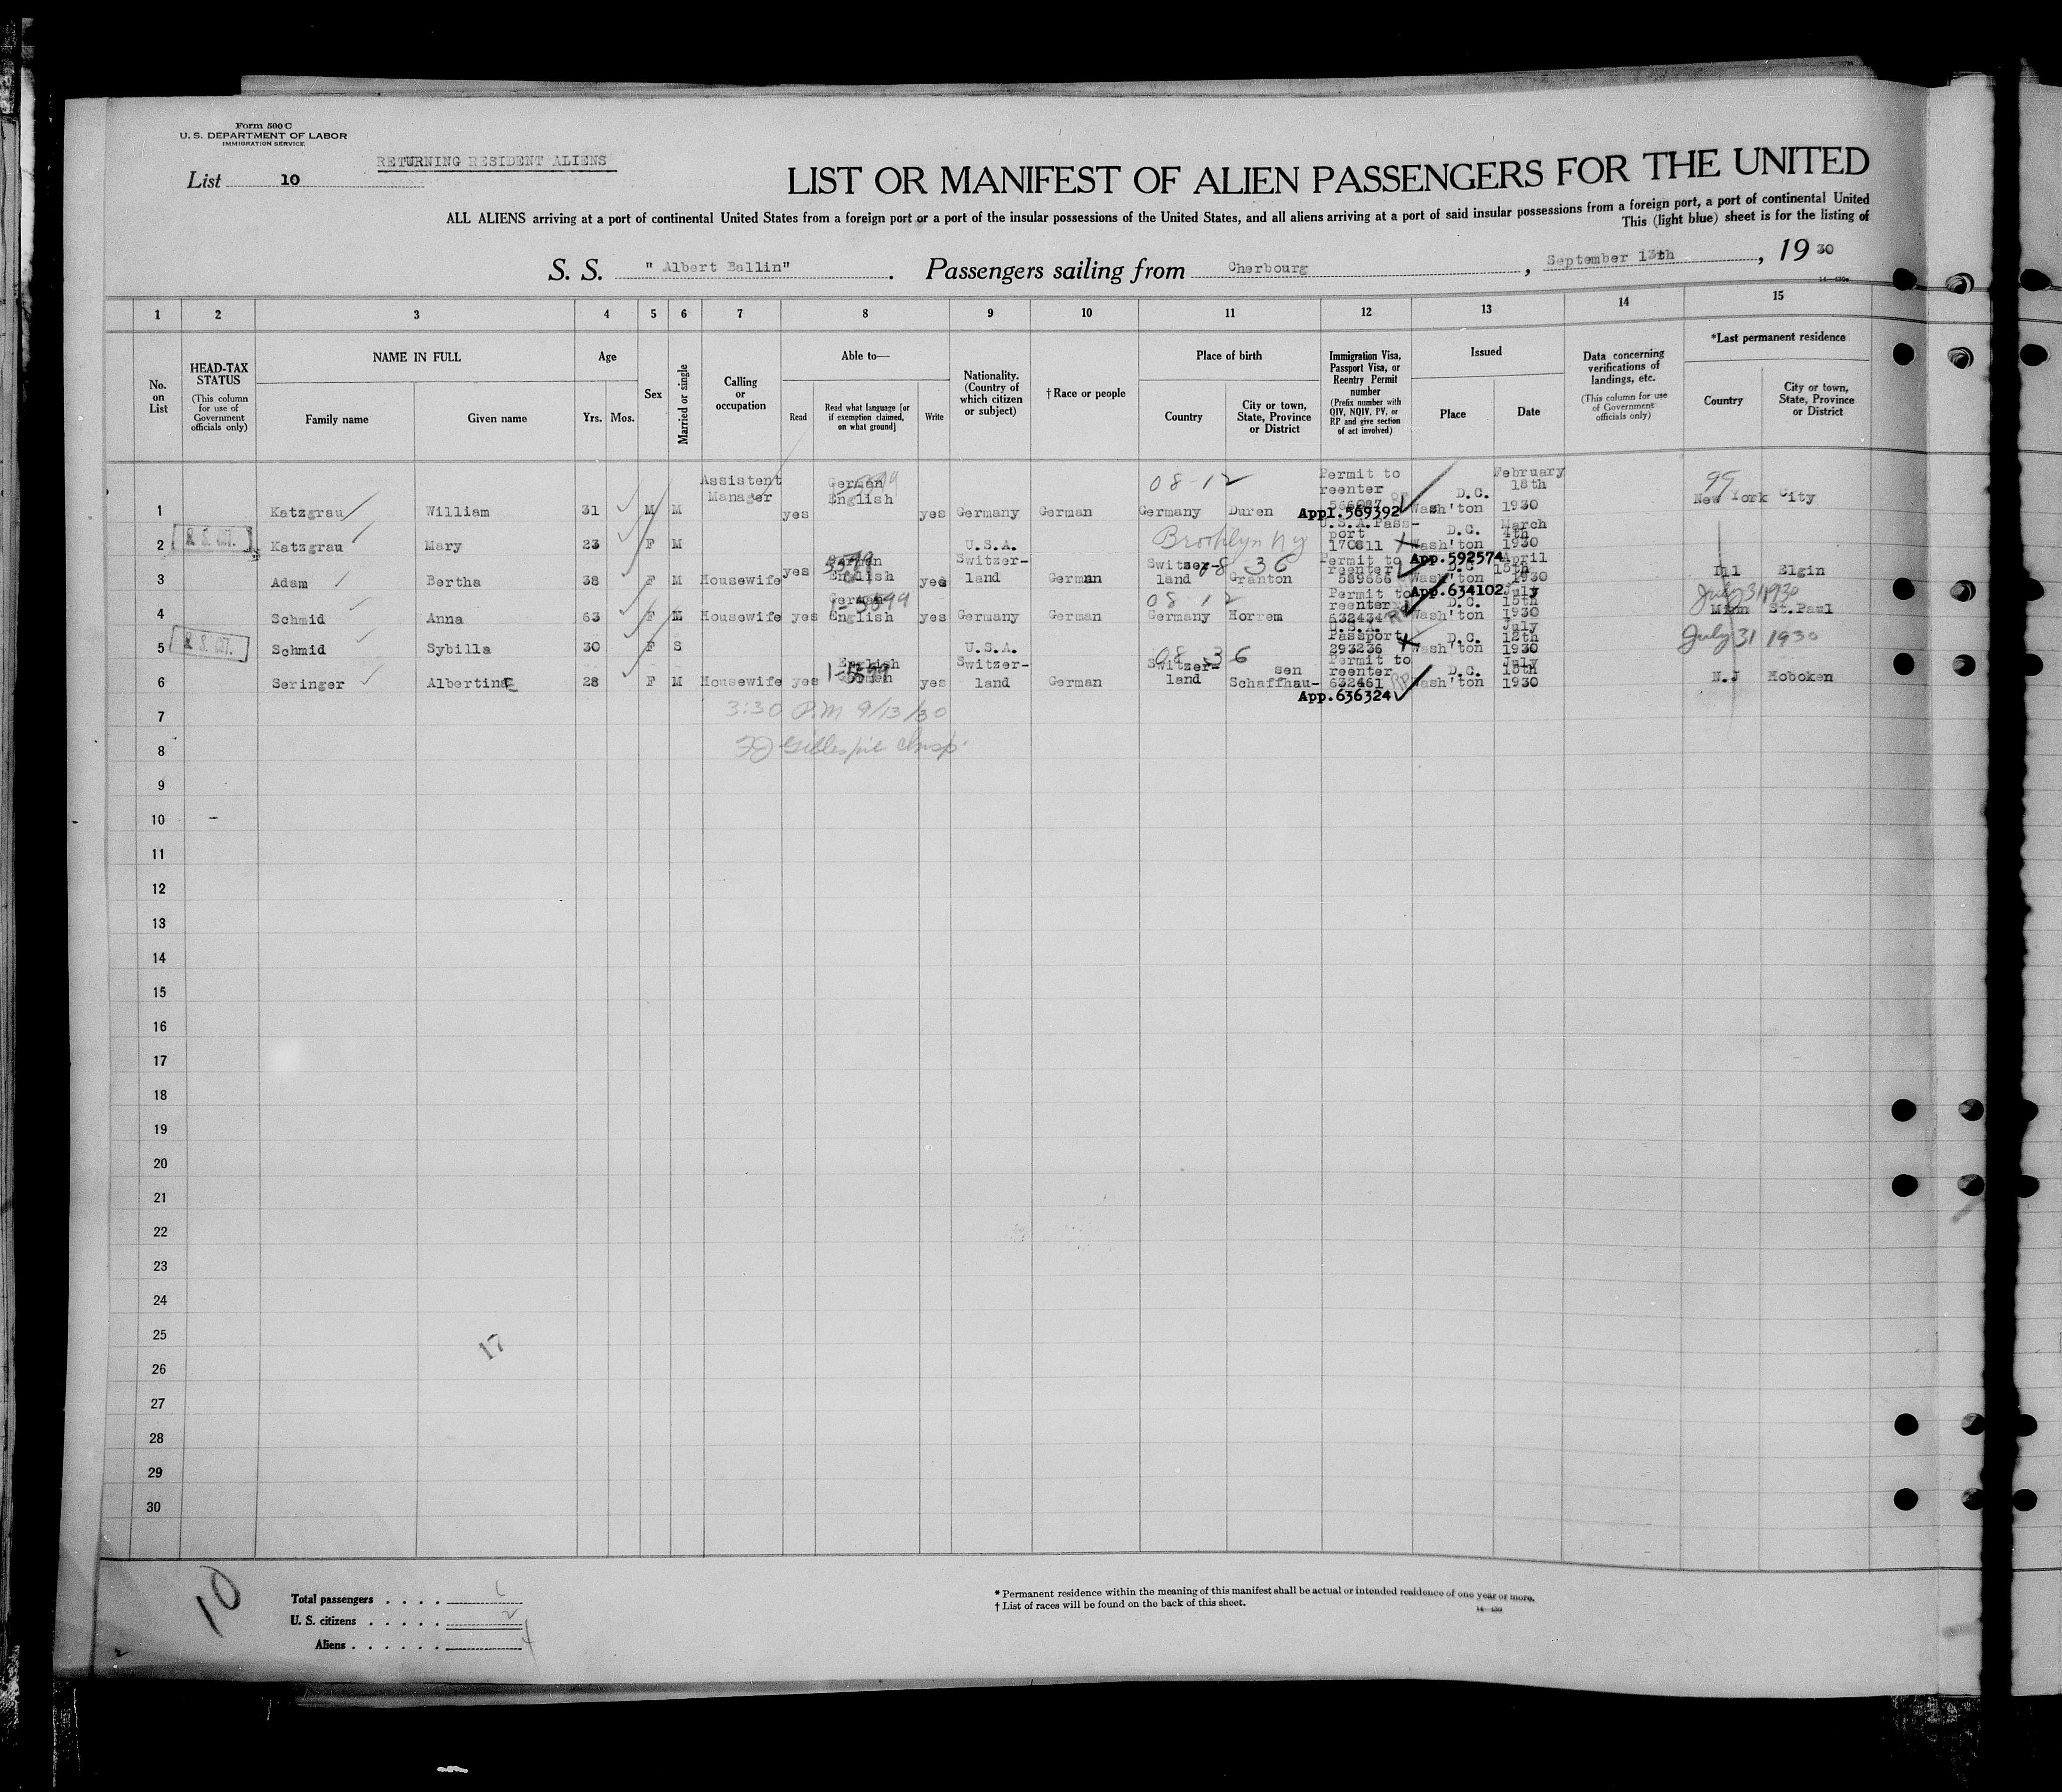 Form 500 C
U. S. DEPARTMENT OF LABOR
IMMIGRATION SERVICE
RETURNING RESIDENT ALIENS
List 10
LIST OR MANIFEST OF ALIEN PASSENGERS FOR THE UNITED
ALL ALIENS arriving at a port of continental United States from a foreign port or a port of the insular possessions of the United States, and all aliens arriving at a port of said insular possessions from a foreign port, a port of continental United
This (light blue) sheet is for the listing of
S. S. " Albert Ballin" . Passengers sailing from Cherbourg , September 13th , 19 30
1 2 3 4 5 6 7 8 9 10 11 12 13 14 15
No. on List
HEAD-TAX STATUS (This column for use of Government officials only)
NAME IN FULL
Family name Given name
Age
Yrs. Mos.
Sex
Married or single
Calling or occupation
Able to—
Read
Read what language [or if exemption claimed, on what ground]
Write
Nationality. (Country of which citizen or subject)
† Race or people
Place of birth
Country
City or town, State, Province or District
Immigration Visa, Passport Visa, or Reentry Permit number (Prefix number with QIV, NQIV, PV, or RP and give section of act involved)
Issued
Place Date
Data concerning verifications of landings, etc. (This column for use of Government officials only)
*Last permanent residence
Country
City or town, State, Province or District
1 Katzgrau William 31 M M Assistent Manager yes German English yes Germany German 08-12 Germany Duren Permit to reenter 566087 App1.569392 D.C. Wash'ton February 18th 1930 99 New York City
2 Katzgrau Mary 23 F M U.S.A. Brooklyn NY U.S.A.Pass-port 170811 D.C. Wash'ton March 4th 1930
3 Adam Bertha 38 F M Housewife yes German English yes Switzer-land German Switzer-land 08 36 Granton Permit to reenter 589666 App.592574 D.C Wash'ton April 15th 1930 Ill Elgin
4 Schmid Anna 63 F M Housewife yes German English yes Germany German 08-12 Germany Horrem Permit to reenter 632434 App.634102 D.C. Wash'ton July 15th 1930 July 31 1930 Minn St.Paul
5 Schmid Sybilla 30 F S U.S.A. U.S.A. Passport 293236 D.C. Wash'ton July 12th 1930 July 31 1930
6 Seringer Albertine 28 F M Housewife yes English German yes Switzer-land German 08 36 Switzer-land Schaffhau-sen Permit to reenter 632461 App.636324 D.C. Wash'ton July 15th 1930 N.J Hoboken
7 3:30 P.M 9/13/30
8 Gillespie Insp.
9
10
11
12
13
14
15
16
17
18
19
20
21
22
23
24
25
17
26
27
28
29
30
10
Total passengers . . . .
U. S. citizens . . . . . 2
Aliens . . . . . . 4
* Permanent residence within the meaning of this manifest shall be actual or intended residence of one year or more.
† List of races will be found on the back of this sheet.